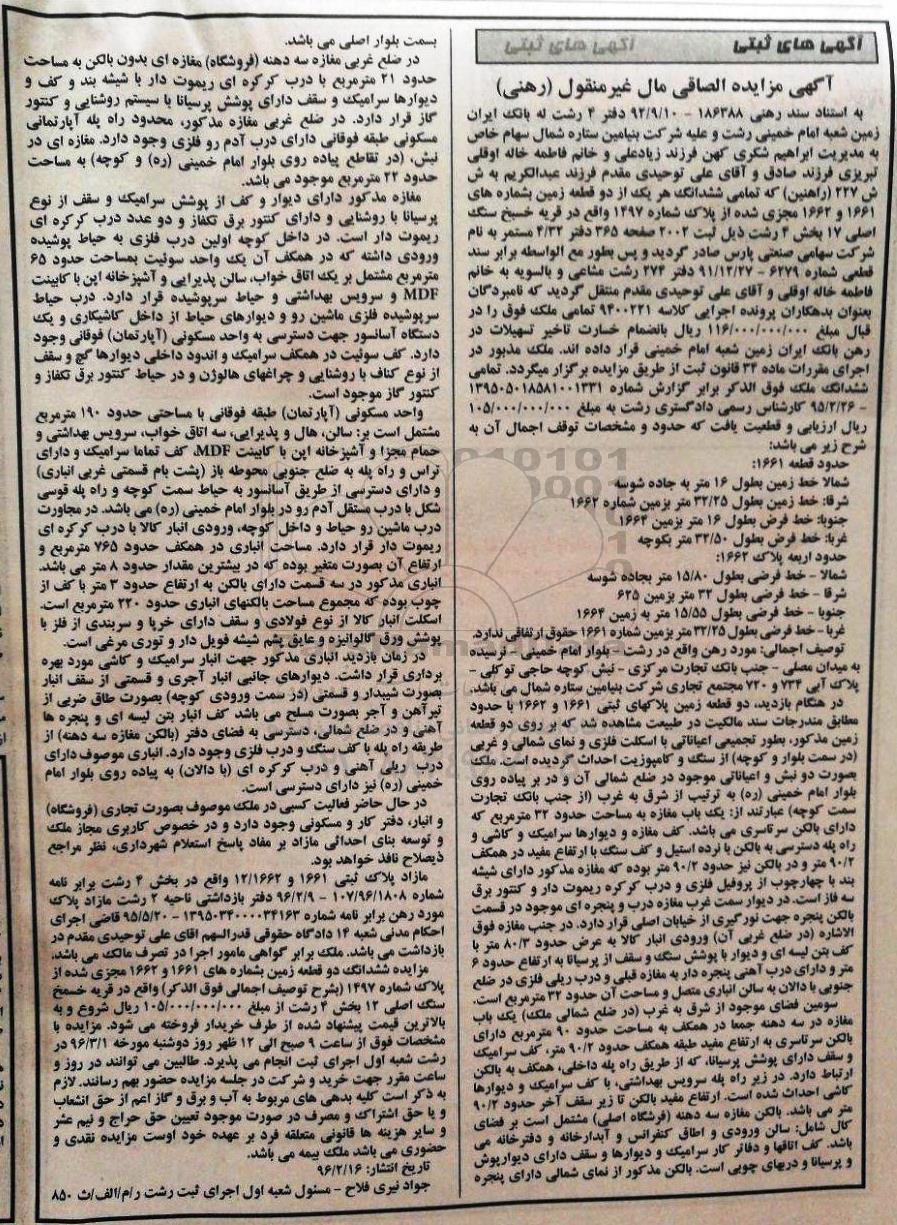 آگهی های ثبتی
آگهی مزایده الصاقی مال غیرمنقول (رهنی)
به استناد سند رهنی ۱۸۶۳۸۸ - ۹۲/۹/۱۰ دفتر ۴ رشت له بانک ایران
زمین شعبه امام خمینی رشت و علیه شرکت بنیامین ستاره شمال سهام خاص
به مدیریت ابراهیم شکری کهن فرزند زیادعلی و خانم فاطمه خاله اوقلی
تبریزی فرزند صادق و آقای علی توحیدی مقدم فرزند عبدالکریم به ش
ش ۲۲۷ (راهنین) که تمامی ششدانگ هر یک از دو قطعه زمین بشماره های
۱۶۶۱ و ۱۶۶۲ مجزی شده از پلاک شماره ۱۴۹۷ واقع در قریه خسبخ سنگ
اصلی ۱۷ بخش ۴ رشت ذیل ثبت ۲۰۰۲ صفحه ۳۶۵ دفتر ۴/۳۲ مستمر به نام
شرکت سهامی صنعتی پارس صادر گردید و پس بطور مع الواسطه برابر سند
قطعی شماره ۶۲۷۹ - ۹۱/۱۲/۲۷ دفتر ۲۷۴ رشت مشاعی و بالسویه به خانم
فاطمه خاله اوقلی و آقای علی توحیدی مقدم منتقل گردید که نامبردگان
بعنوان بدهکاران پرونده اجرایی کلاسه ۹۴۰۰۲۲۱ تمامی ملک فوق را در
قبال مبلغ ۱۱۶/۰۰۰/۰۰۰/۰۰۰ ریال بانضمام خسارت تاخیر تسهیلات در
رهن بانک ایران زمین شعبه امام خمینی قرار داده اند. ملک مذبور در
اجرای مقررات ماده ۳۴ قانون ثبت از طریق مزایده برگزار میگردد. تمامی
ششدانگ ملک فوق الذکر برابر گزارش شماره ۱۳۹۵۰۵۰۱۸۵۸۱۰۰۱۳۳۱
- ۹۵/۲/۲۶ کارشناس رسمی دادگستری رشت به مبلغ ۱۰۵/۰۰۰/۰۰۰/۰۰۰
ریال ارزیابی و قطعیت یافت که حدود و مشخصات توقف اجمال آن به
شرح زیر می باشد:
حدود قطعه ۱۶۶۱:
شمالا خط زمین بطول ۱۶ متر به جاده شوسه
شرقا: خط زمین بطول ۳۲/۲۵ متر بزمین شماره ۱۶۶۲
جنوبا: خط فرض بطول ۱۶ متر بزمین ۱۶۶۴
غربا: خط فرض بطول ۳۲/۵۰ متر بکوچه
حدود اربعه پلاک ۱۶۶۲:
شمالا - خط فرضی بطول ۱۵/۸۰ متر بجاده شوسه
شرقا - خط فرضی بطول ۳۲ متر بزمین ۶۲۵
جنوبا - خط فرضی بطول ۱۵/۵۵ متر به زمین ۱۶۶۴
غربا - خط فرضی بطول ۳۲/۲۵ متر بزمین شماره ۱۶۶۱ حقوق ارتفاقی ندارد.
توصیف اجمالی: مورد رهن واقع در رشت - بلوار امام خمینی - نرسیده
به میدان مصلی - جنب بانک تجارت مرکزی - نبش کوچه حاجی توکلی -
پلاک آبی ۷۳۴ و ۷۲۰ مجتمع تجاری شرکت بنیامین ستاره شمال می باشد.
در هنگام بازدید، دو قطعه زمین پلاکهای ثبتی ۱۶۶۱ و ۱۶۶۲ با حدود
مطابق مندرجات سند مالکیت در طبیعت مشاهده شد که بر روی دو قطعه
زمین مذکور، بطور تجمیعی اعیاناتی با اسکلت فلزی و نمای شمالی و غربی
(در سمت بلوار و کوچه) از سنگ و کامپوزیت احداث گردیده است. ملک
بصورت دو نبش و اعیاناتی موجود در ضلع شمالی آن و در بر پیاده روی
بلوار امام خمینی (ره) به ترتیب از شرق به غرب (از جنب بانک تجارت
سمت کوچه) عبارتند از: یک باب مغازه به مساحت حدود ۳۲ مترمربع که
دارای بالکن سرتاسری می باشد. کف مغازه و دیوارها سرامیک و کاشی و
راه پله دسترسی به بالکن با نرده استیل و کف سنگ با ارتفاع مفید در همکف
۹۰/۲ متر و در بالکن نیز حدود ۹۰/۲ متر بوده که مغازه مذکور دارای شیشه
بند با چهارچوب از پروفیل فلزی و درب کرکره ریموت دار و کنتور برق
سه فاز است. در دیوار سمت غرب مغازه درب و پنجره ای موجود در قسمت
بالکن پنجره جهت نورگیری از خیابان اصلی قرار دارد. در جنب مغازه فوق
الاشاره (در ضلع غربی آن) ورودی انبار کالا به عرض حدود ۸۰/۳ متر با
کف بتن لیسه ای و دیوار با پوشش سنگ و سقف از پرسیانا به ارتفاع حدود ۶
متر و دارای درب آهنی پنجره دار به مغازه قبلی و درب ریلی فلزی در ضلع
جنوبی با دالان به سالن انباری متصل و مساحت آن حدود ۳۲ مترمربع است.
سومین فضای موجود از شرق به غرب (در ضلع شمالی ملک) یک باب
مغازه در سه دهنه جمعا در همکف به مساحت حدود ۹۰ مترمربع دارای
بالکن سرتاسری به ارتفاع مفید طبقه همکف حدود ۹۰/۲ متر، کف سرامیک
و سقف دارای پوشش پرسیانا، که از طریق راه پله داخلی، همکف به بالکن
ارتباط دارد. در زیر راه پله سرویس بهداشتی، با کف سرامیک و دیوارها
کاشی احداث شده است. ارتفاع مفید بالکن تا زیر سقف آخر حدود ۹۰/۲
متر می باشد. بالکن مغازه سه دهنه (فرشگاه اصلی) مشتمل است بر فضای
کال شامل: سالن ورودی و اطاق کنفرانس و آبدارخانه و دفترخانه می
باشد. کف اتاقها و دفاتر کار سرامیک و دیوارها و سقف دارای دیوارپوش
و پرسیانا و دربهای چوبی است. بالکن مذکور از نمای شمالی دارای پنجره
بسمت بلوار اصلی می باشد.
در ضلع غربی مغازه سه دهنه (فروشگاه) مغازه ای بدون بالکن به مساحت
حدود ۲۱ مترمربع با درب کرکره ای ریموت دار با شیشه بند و کف و
دیوارها سرامیک و سقف دارای پوشش پرسیانا با سیستم روشنایی و کنتور
گاز قرار دارد. در ضلع غربی مغازه مذکور، محدود راه پله آپارتمانی
مسکونی طبقه فوقانی دارای درب آدم رو فلزی وجود دارد. مغازه ای در
نبش، (در تقاطع پیاده روی بلوار امام خمینی (ره) و کوچه) به مساحت
حدود ۲۲ مترمربع موجود می باشد.
مغازه مذکور دارای دیوار و کف از پوشش سرامیک و سقف از نوع
پرسیانا با روشنایی و دارای کنتور برق تکفاز و دو عدد درب کرکره ای
ریموت دار است. در داخل کوچه اولین درب فلزی به حیاط پوشیده
ورودی داشته که در همکف آن یک واحد سوئیت بمساحت حدود ۶۵
مترمربع مشتمل بر یک اتاق خواب، سالن پذیرایی و آشپزخانه اپن با کابینت
MDF و سرویس بهداشتی و حیاط سرپوشیده قرار دارد. درب حیاط
سرپوشیده فلزی ماشین رو و دیوارهای حیاط از داخل کاشیکاری و یک
دستگاه آسانسور جهت دسترسی به واحد مسکونی (آپارتمان) فوقانی وجود
دارد. کف سوئیت در همکف سرامیک و اندود داخلی دیوارها گچ و سقف
از نوع کناف با روشنایی و چراغهای هالوژن و در حیاط کنتور برق تکفاز و
کنتور گاز موجود است.
واحد مسکونی (آپارتمان) طبقه فوقانی با مساحتی حدود ۱۹۰ مترمربع
مشتمل است بر: سالن، هال و پذیرایی، سه اتاق خواب، سرویس بهداشتی و
حمام مجزا و آشپزخانه اپن با کابینت MDF، کف تماما سرامیک و دارای
تراس و راه پله به ضلع جنوبی محوطه باز (پشت بام قسمتی غربی انباری)
و دارای دسترسی از طریق آسانسور به حیاط سمت کوچه و راه پله قوسی
شکل با درب مستقل آدم رو در بلوار امام خمینی (ره) می باشد. در مجاورت
درب ماشین رو حیاط و داخل کوچه، ورودی انبار کالا با درب کرکره ای
ریموت دار قرار دارد. مساحت انباری در همکف حدود ۷۶۵ مترمربع و
ارتفاع آن بصورت متغیر بوده که در بیشترین مقدار حدود ۸ متر می باشد.
انباری مذکور در سه قسمت دارای بالکن به ارتفاع حدود ۳ متر با کف از
چوب بوده که مجموع مساحت بالکنهای انباری حدود ۲۲۰ مترمربع است.
اسکلت انبار کالا از نوع فولادی و سقف دارای خرپا و سربندی از فلز با
پوشش ورق گالوانیزه و عایق پشم شیشه فویل دار و توری مرغی است.
در زمان بازدید انباری مذکور جهت انبار سرامیک و کاشی مورد بهره
برداری قرار داشت. دیوارهای جانبی انبار آجری و قسمتی از سقف انبار
بصورت شیبدار و قسمتی (در سمت ورودی کوچه) بصورت طاق ضربی از
تیرآهن و آجر بصورت مسلح می باشد کف انبار بتن لیسه ای و پنجره ها
آهنی و در ضلع شمالی، دسترسی به فضای دفتر (بالکن مغازه سه دهنه) از
طریقه راه پله با کف سنگ و درب فلزی وجود دارد. انباری موصوف دارای
درب ریلی آهنی و درب کرکره ای (با دالان) به پیاده روی بلوار امام
خمینی (ره) نیز دارای دسترسی است.
در حال حاضر فعالیت کسبی در ملک موصوف بصورت تجاری (فروشگاه)
و انبار، دفتر کار و مسکونی وجود دارد و در خصوص کاربری مجاز ملک
و توسعه بنای احداثی مازاد بر مفاد پاسخ استعلام شهرداری، نظر مراجع
ذیصلاح نافذ خواهد بود.
مازاد پلاک ثبتی ۱۶۶۱ و ۱۲/۱۶۶۲ واقع در بخش ۴ رشت برابر نامه
شماره ۱۰۷/۹۶/۱۸۰۸ - ۹۶/۲/۹ دفتر بازداشتی ناحیه ۲ رشت مازاد پلاک
مورد رهن برابر نامه شماره ۱۳۹۵۰۳۴۰۰۰۰۳۴۱۶۳ - ۹۵/۵/۲۰ قاضی اجرای
احکام مدنی شعبه ۱۴ دادگاه حقوقی قدرالسهم اقای علی توحیدی مقدم در
بازداشت می باشد. ملک برابر گواهی مامور اجرا در تصرف مالک می باشد.
مزایده ششدانگ دو قطعه زمین بشماره های ۱۶۶۱ و ۱۶۶۲ مجزی شده از
پلاک شماره ۱۴۹۷ (بشرح توصیف اجمالی فوق الذکر) واقع در قریه خسمخ
سنگ اصلی ۱۲ بخش ۴ رشت از مبلغ ۱۰۵/۰۰۰/۰۰۰/۰۰۰ ریال شروع و به
بالاترین قیمت پیشنهاد شده از طرف خریدار فروخته می شود. مزایده با
مشخصات فوق از ساعت ۹ صبح الی ۱۲ ظهر روز دوشنبه مورخه ۹۶/۳/۱ در
رشت شعبه اول اجرای ثبت انجام می پذیرد. طالبین می توانند در روز و
ساعت مقرر جهت خرید و شرکت در جلسه مزایده حضور بهم رسانند. لازم
به ذکر است کلیه بدهی های مربوط به آب و برق و گاز اعم از حق انشعاب
و یا حق اشتراک و مصرف در صورت موجود تعیین حق حراج و نیم عشر
و سایر هزینه ها قانونی متعلقه فرد بر عهده خود اوست مزایده نقدی و
حضوری می باشد ملک بیمه می باشد.
تاریخ انتشار: ۹۶/۲/۱۶
جواد نیری فلاح - مسئول شعبه اول اجرای ثبت رشت ر/م/الف/ث ۸۵۰